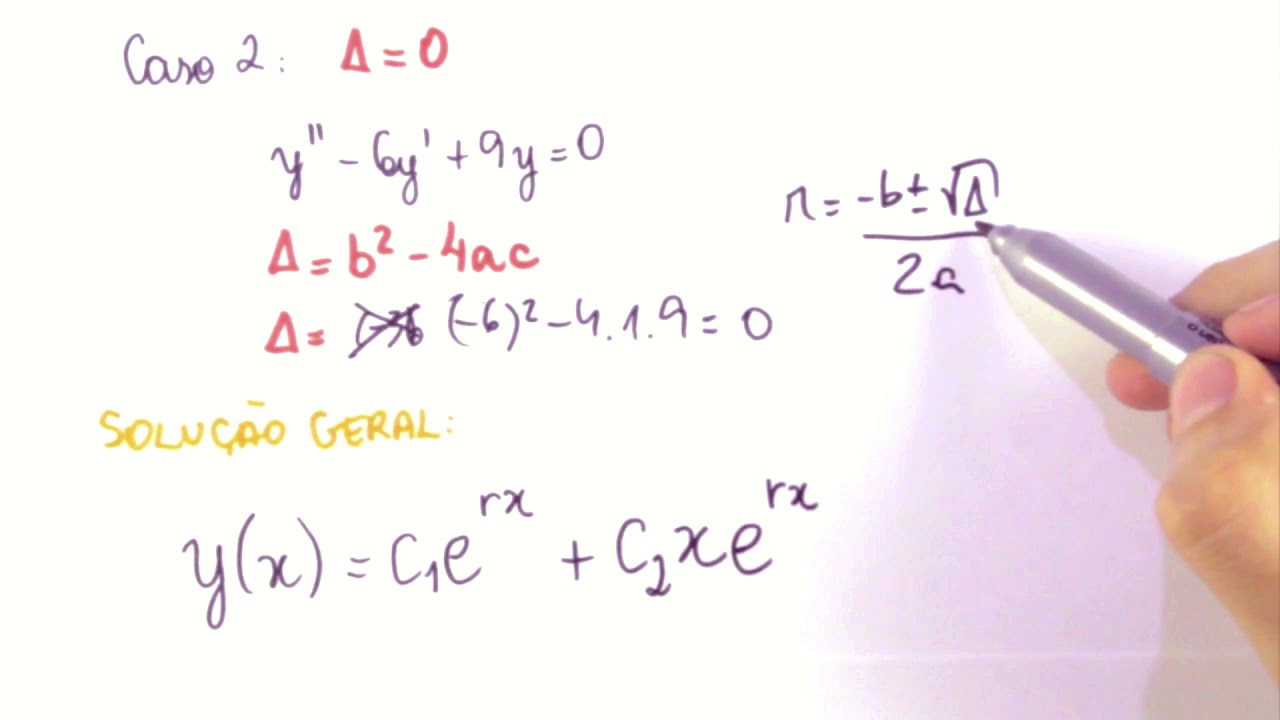 Caso 2: Δ = 0
y'' - 6y' + 9y = 0
r = -b ± √Δ
2a
Δ = b² - 4ac
Δ = (-6)² - 4.1.9 = 0
SOLUÇÃO GERAL:
y(x) = C₁e^rx + C₂xe^rx